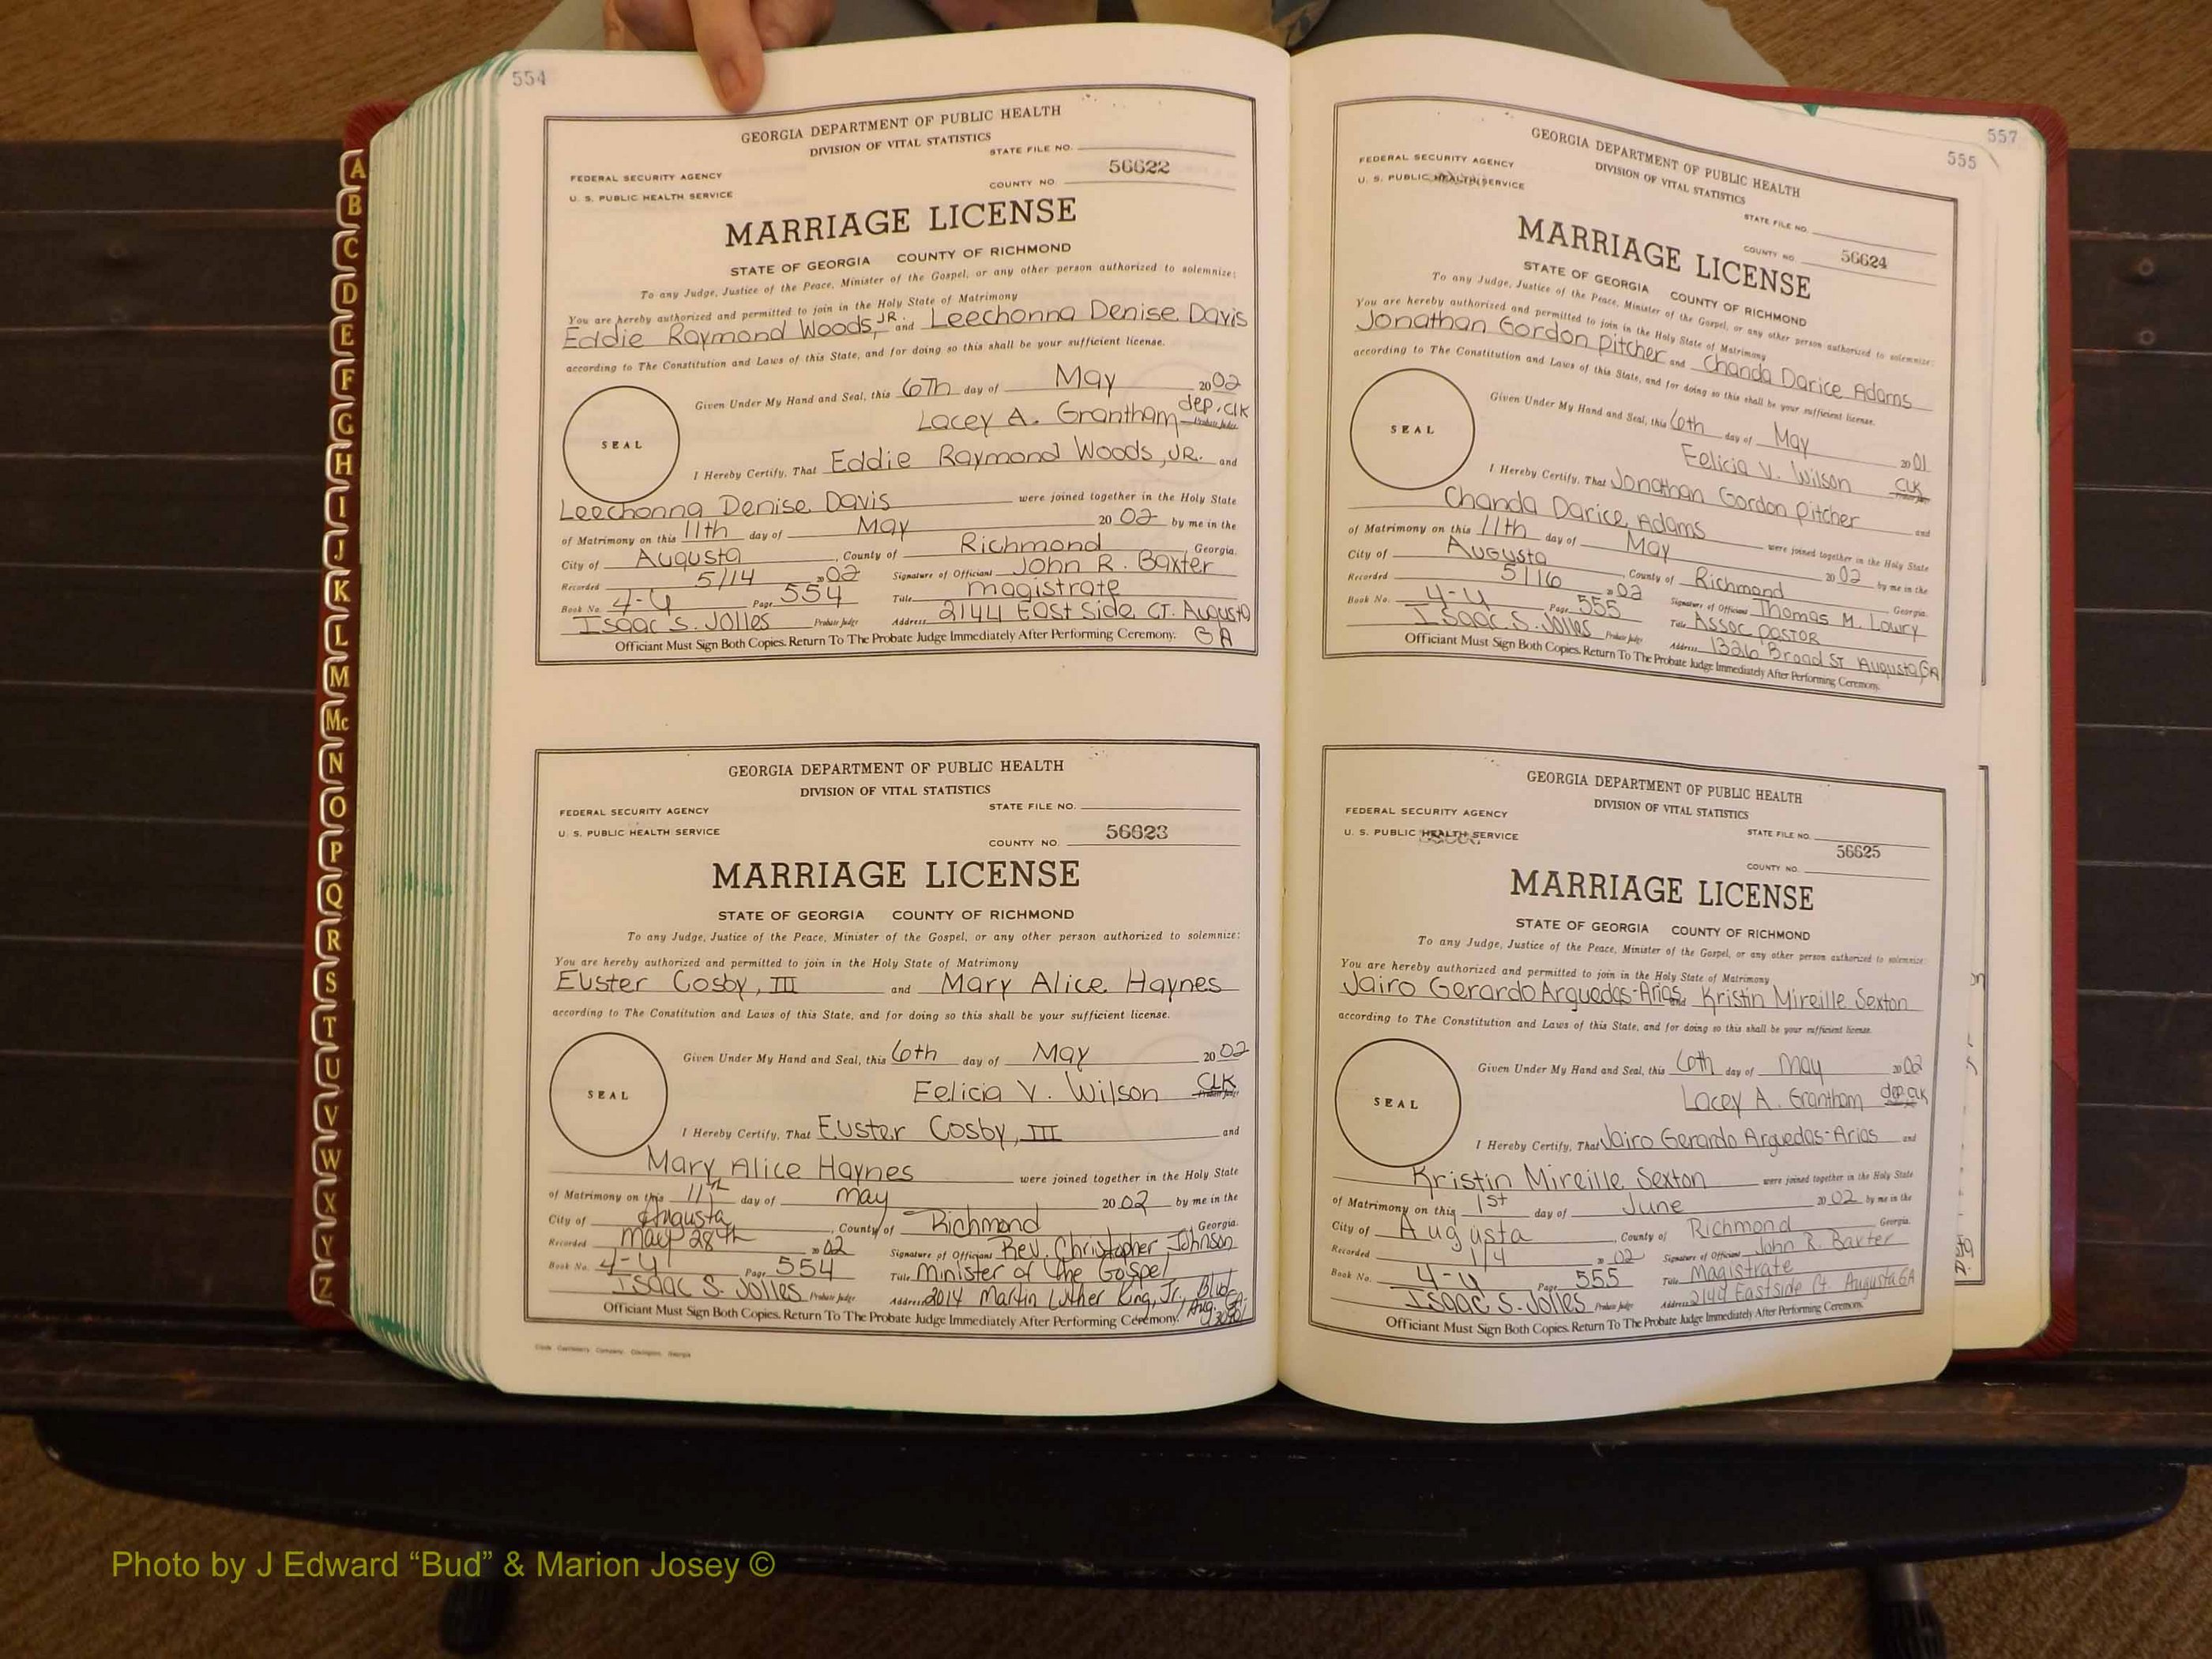 554
GEORGIA DEPARTMENT OF PUBLIC HEALTH
DIVISION OF VITAL STATISTICS
STATE FILE NO.
FEDERAL SECURITY AGENCY
56622
U. S. PUBLIC HEALTH SERVICE
COUNTY NO.
MARRIAGE LICENSE
STATE OF GEORGIA COUNTY OF RICHMOND
To any Judge, Justice of the Peace, Minister of the Gospel, or any other person authorized to solemnize:
You are hereby authorized and permitted to join in the Holy State of Matrimony
Eddie Raymond Woods, JR. and Leechonna Denise Davis
according to The Constitution and Laws of this State, and for doing so this shall be your sufficient license.
SEAL
Given Under My Hand and Seal, this 6th day of May 2002
Lacey A. Grantham dep. clk Probate Judge
I Hereby Certify, That Eddie Raymond Woods, JR. and
Leechonna Denise Davis were joined together in the Holy State
of Matrimony on this 11th day of May 20 02 by me in the
City of Augusta, County of Richmond Georgia.
Recorded 5/14 2002 Signature of Officiant John R. Baxter
Book No. 4-U Page 554 Title magistrate
Isaac S. Jolles Probate Judge Address 2144 East Side CT. Augusta
GA
Officiant Must Sign Both Copies. Return To The Probate Judge Immediately After Performing Ceremony.
GEORGIA DEPARTMENT OF PUBLIC HEALTH
DIVISION OF VITAL STATISTICS
FEDERAL SECURITY AGENCY
STATE FILE NO.
U. S. PUBLIC HEALTH SERVICE
56623
COUNTY NO.
MARRIAGE LICENSE
STATE OF GEORGIA COUNTY OF RICHMOND
To any Judge, Justice of the Peace, Minister of the Gospel, or any other person authorized to solemnize:
You are hereby authorized and permitted to join in the Holy State of Matrimony
Euster Cosby, III and Mary Alice Haynes
according to The Constitution and Laws of this State, and for doing so this shall be your sufficient license.
SEAL
Given Under My Hand and Seal, this 6th day of May 2002
Felicia V. Wilson CLK Probate Judge
I Hereby Certify, That Euster Cosby, III and
Mary Alice Haynes were joined together in the Holy State
of Matrimony on this 11th day of may 20 02 by me in the
City of Augusta, County of Richmond Georgia.
Recorded may 28th 2002 Signature of Officiant Rev. Christopher Johnson
Book No. 4-U Page 554 Title Minister of the Gospel
Isaac S. Jolles Probate Judge Address 2014 Martin Luther King, Jr., Blvd
Aug. GA. 30901
Officiant Must Sign Both Copies. Return To The Probate Judge Immediately After Performing Ceremony.
557
555
GEORGIA DEPARTMENT OF PUBLIC HEALTH
DIVISION OF VITAL STATISTICS
FEDERAL SECURITY AGENCY
U. S. PUBLIC HEALTH SERVICE
STATE FILE NO.
COUNTY NO. 56624
MARRIAGE LICENSE
STATE OF GEORGIA COUNTY OF RICHMOND
To any Judge, Justice of the Peace, Minister of the Gospel, or any other person authorized to solemnize:
You are hereby authorized and permitted to join in the Holy State of Matrimony
Jonathan Gordon Pitcher and Chanda Darice Adams
according to The Constitution and Laws of this State, and for doing so this shall be your sufficient license.
SEAL
Given Under My Hand and Seal, this 6th day of May 2001
Felicia V. Wilson CLK Probate Judge
I Hereby Certify, That Jonathan Gordon Pitcher and
Chanda Darice Adams were joined together in the Holy State
of Matrimony on this 11th day of May 20 02 by me in the
City of Augusta, County of Richmond Georgia.
Recorded 5/16 2002 Signature of Officiant Thomas M. Lowry
Book No. 4-U Page 555 Title Assoc Pastor
Isaac S. Jolles Probate Judge Address 1326 Broad ST Augusta, GA
Officiant Must Sign Both Copies. Return To The Probate Judge Immediately After Performing Ceremony.
GEORGIA DEPARTMENT OF PUBLIC HEALTH
DIVISION OF VITAL STATISTICS
FEDERAL SECURITY AGENCY
STATE FILE NO.
U. S. PUBLIC HEALTH SERVICE
56625
COUNTY NO.
MARRIAGE LICENSE
STATE OF GEORGIA COUNTY OF RICHMOND
To any Judge, Justice of the Peace, Minister of the Gospel, or any other person authorized to solemnize:
You are hereby authorized and permitted to join in the Holy State of Matrimony
Jairo Gerardo Arguedas-Arias and Kristin Mireille Sexton
according to The Constitution and Laws of this State, and for doing so this shall be your sufficient license.
SEAL
Given Under My Hand and Seal, this 6th day of May 2002
Lacey A. Grantham dep clk
I Hereby Certify, That Jairo Gerardo Arguedas-Arias and
Kristin Mireille Sexton were joined together in the Holy State
of Matrimony on this 1st day of June 20 02 by me in the
City of Augusta, County of Richmond Georgia.
Recorded 1/4 2002 Signature of Officiant John R. Baxter
Book No. 4-U Page 555 Title Magistrate
Isaac S. Jolles Probate Judge Address 2144 Eastside Ct. Augusta GA
Officiant Must Sign Both Copies. Return To The Probate Judge Immediately After Performing Ceremony.
A
B
C
D
E
F
G
H
I
J
K
L
M
Mc
N
O
P
Q
R
S
T
U
V
W
X
Y
Z
Photo by J Edward “Bud” & Marion Josey ©